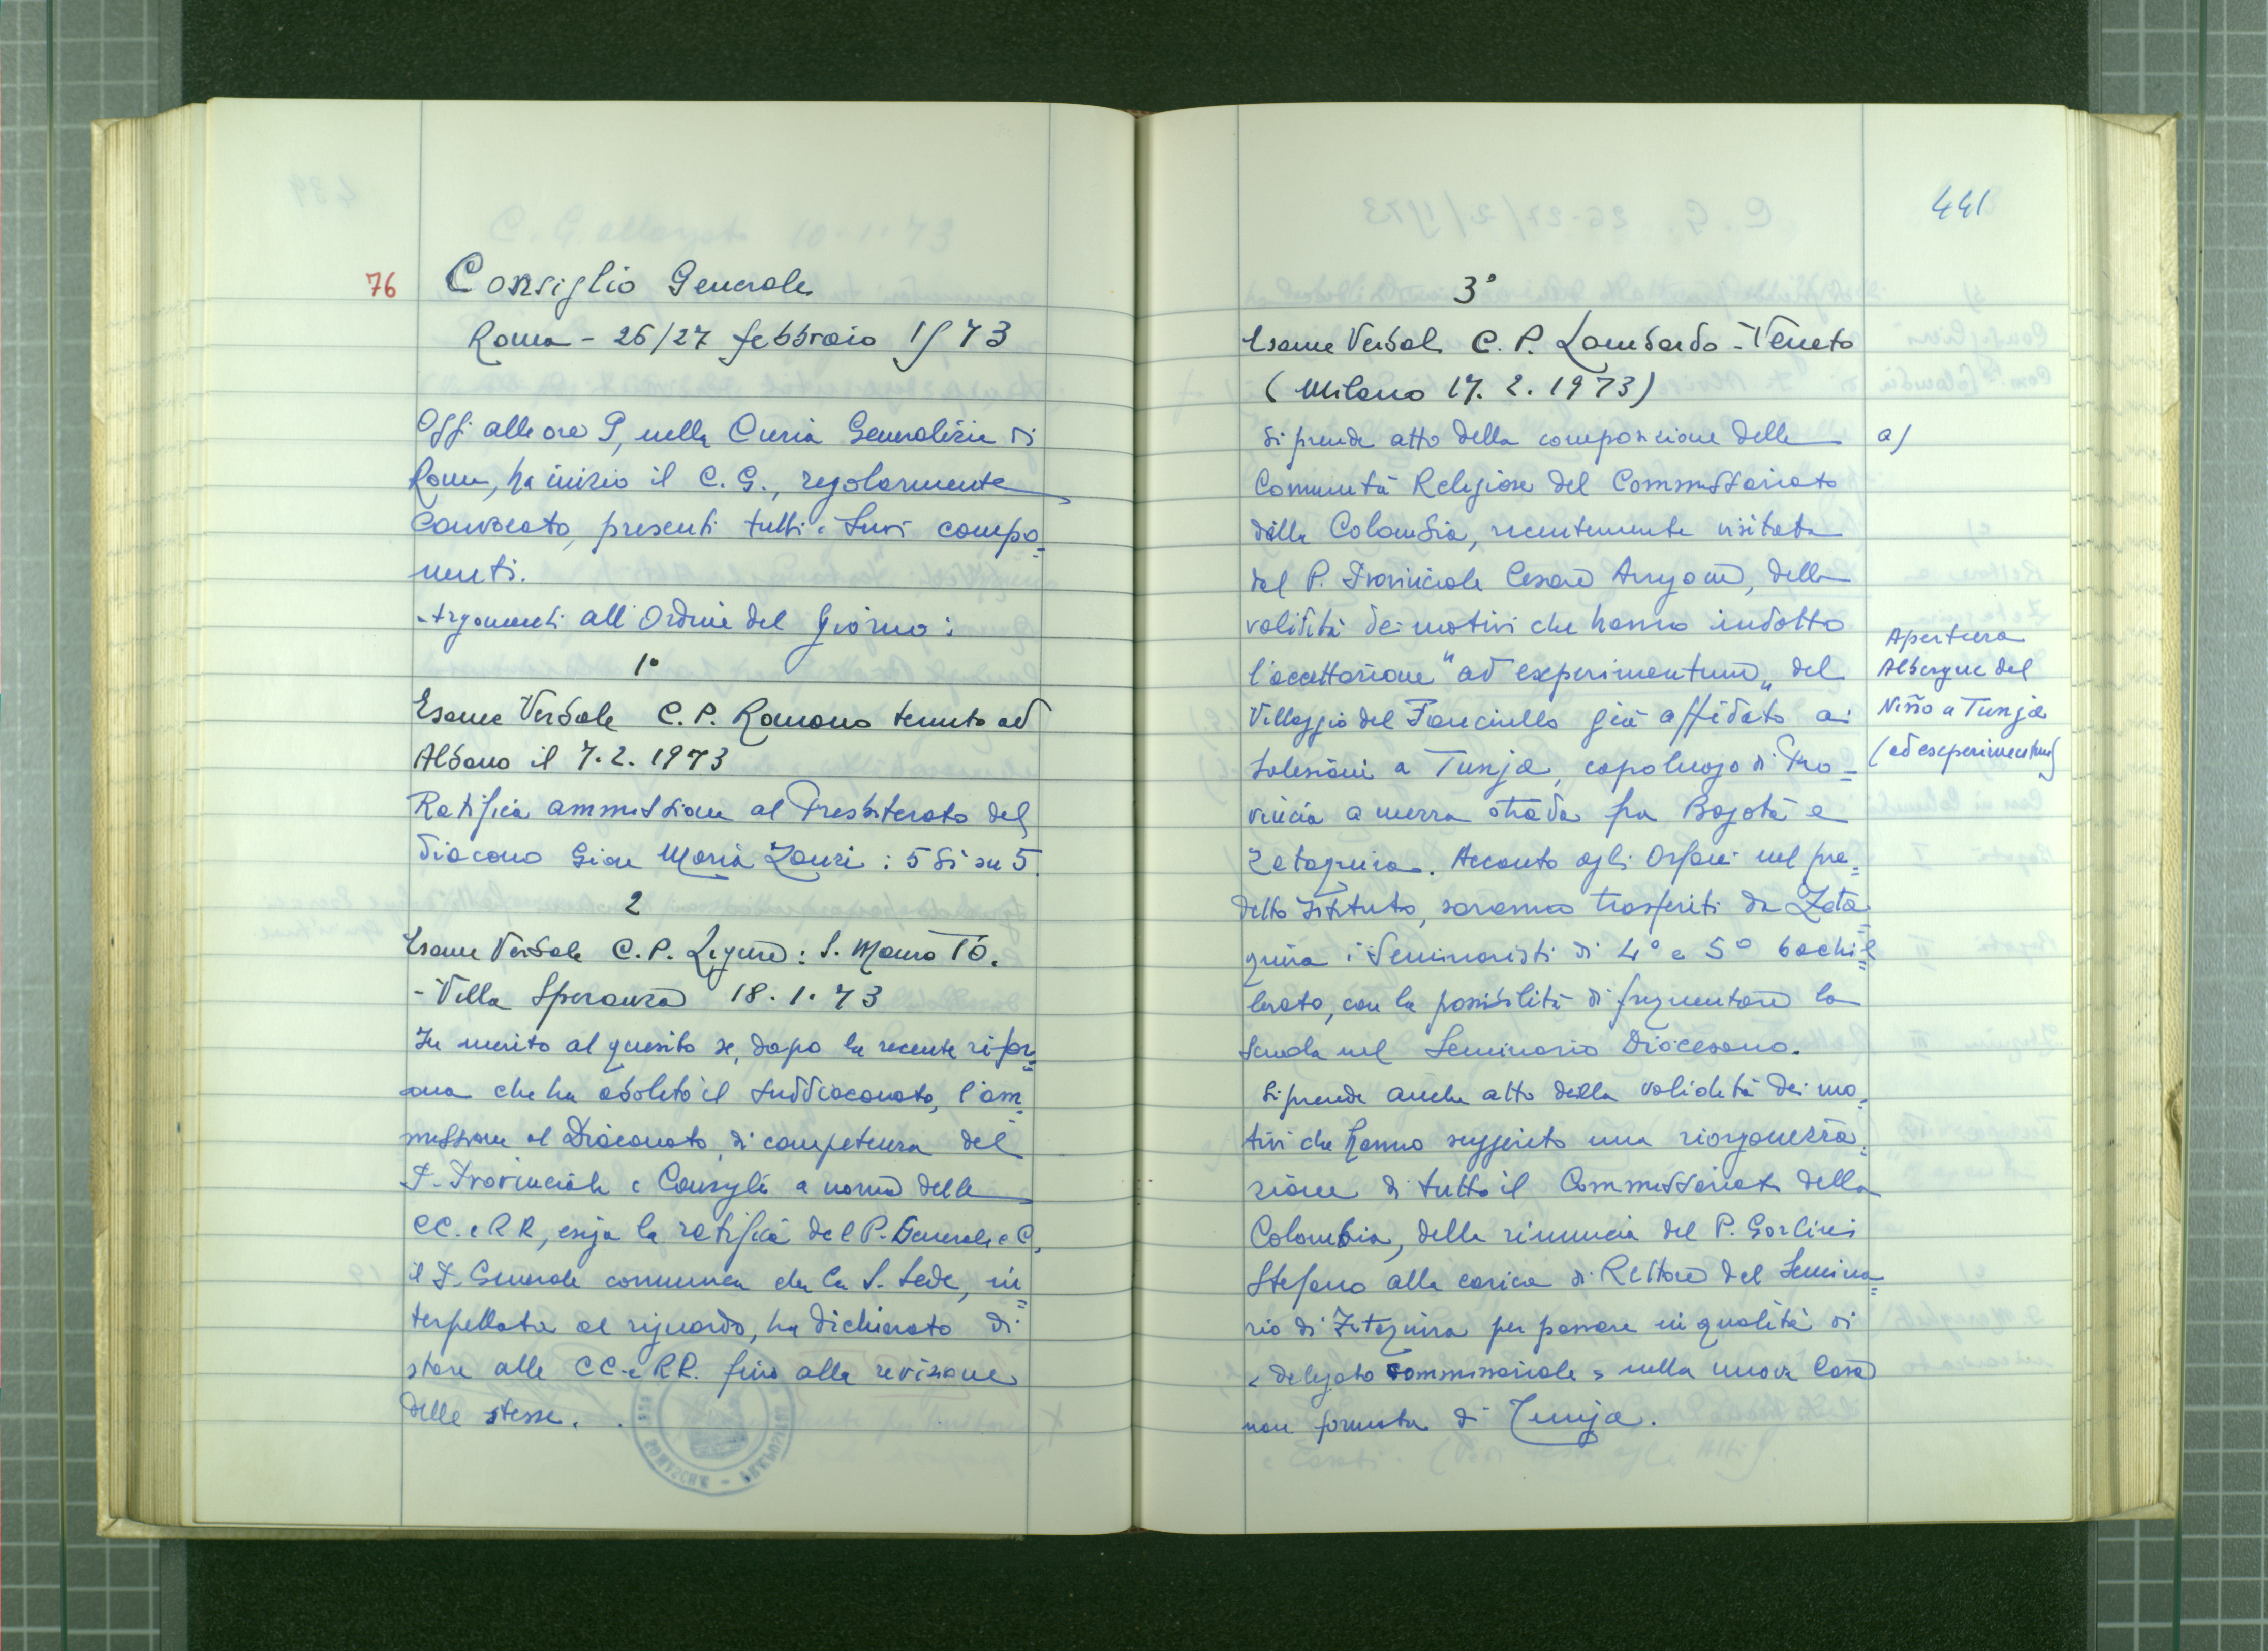 76
Consiglio Generale
Roma - 26/27 febbraio 1973
Oggi alle ore 9, nella Curia Generalizia di
Roma, ha inizio il C. G., regolarmente
convocato, presenti tutti i suoi compo=
nenti.
Argomenti all'Ordine del Giorno:
1°
Esame Verbale C. P. Romano tenuto ad
Albano il 7. 2. 1973
Ratifica ammissione al Presbiterato del
diacono Gian Maria Zanzi : 5 sì su 5.
2
Esame Verbale C. P. Ligure : S. Mauro TO.
- Villa Speranza 18. 1. 73
In merito al quesito se, dopo la recente rifor=
ma che ha abolito il suddiaconato, l'am=
missione al Diaconato, di competenza del
P. Provinciale e Consiglio a norma delle
CC. e RR, esiga la ratifica del P. Generale e C,
il P. Generale comunica che la S. Sede, in=
terpellata al riguardo, ha dichiarato di
stare alle CC. e RR. fino alla revisione
delle stesse.
441
3°
Esame Verbale C. P. Lombardo - Veneto
(Milano 17. 2. 1973)
Si prende atto della composizione delle
a)
Comunità Religiose del Commissariato
della Colombia, recentemente visitata
dal P. Provinciale Cesare Arrigoni, della
validità dei motivi che hanno indotto
l'accettazione "ad experimentum" del
Villaggio del Fanciullo già affidato ai
Salesiani a Tunja, capoluogo di Pro=
vincia a mezza strada fra Bogotà e
Zetaquira. Accanto agli Orfani nel pre=
detto Istituto, saranno trasferiti da Zeta=
quira i Seminaristi di 4° e 5° bachil=
lerato, con la possibilità di frequentare la
Scuola nel Seminario Diocesano.
Si prende anche atto della validità dei mo=
tivi che hanno suggerito una riorganizza=
zione di tutto il Commissariato della
Colombia, della rinuncia del P. Gorlini
Stefano alla carica di Rettore del Semina=
rio di Zetaquira per passare in qualità di
"delegato commissariale" nella nuova Casa
non formata di Tunja.
Apertura
Albergue del
Niño a Tunja
(ad experimentum)